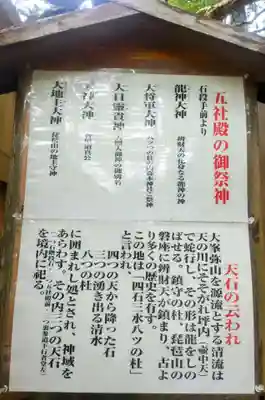 五社殿の御祭神
石段手前より
龍神大神
辨財天の化身なる龍神の神
大将軍大神
大日霊貴神
天照大御神の御別名
大地主大神
琵琶山の地主守神
天石の云われ
大峯弥山を源流とする清流は
天の川にそそがれ坪内(壷中天)
で蛇行し、その形は龍をしの
ばせる。鎮守の杜、琵琶山の
磐座に辨財天が鎮まり、古よ
り多くの歴史を有す。
この地は「四石三水八ツの杜」
と言われ
四つの天から降った石
三つの湧き出る清水
八つの杜
に囲まれし処とされ、神域を
あらわす。その内三つの天石
を境内に祀る。